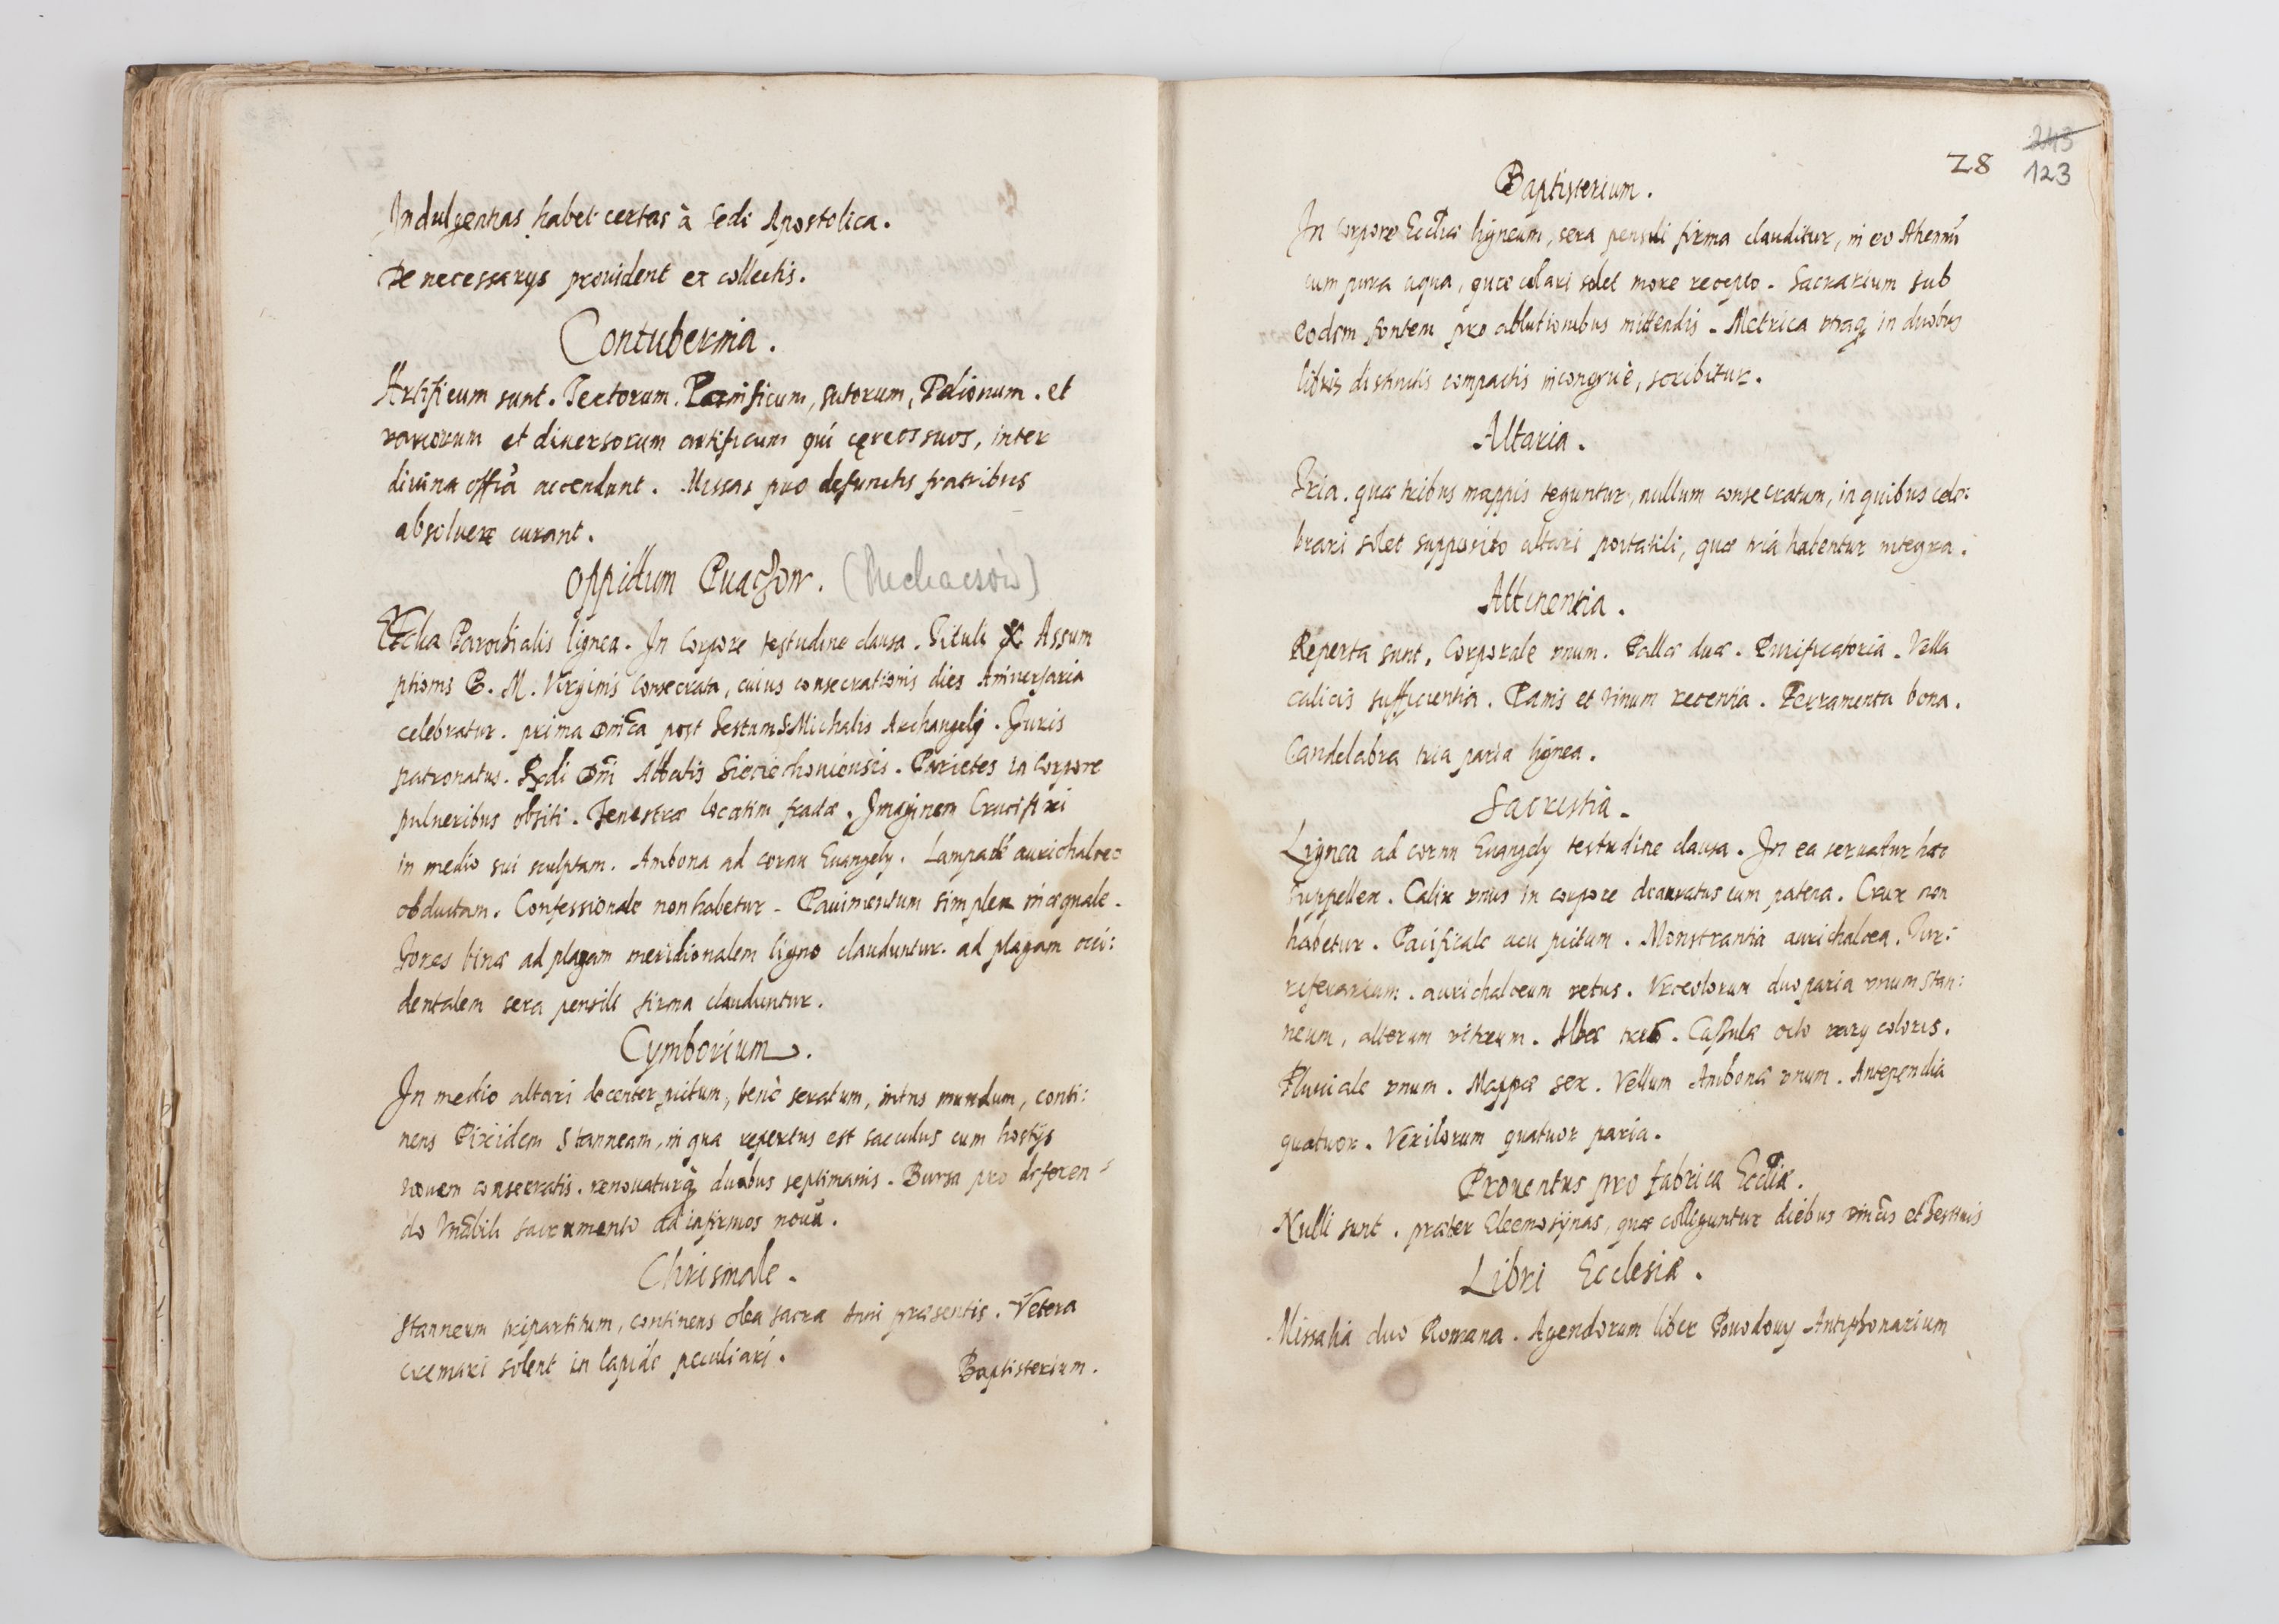 Indulgentias habet certas à Sedi Apostolica.
De necessarijs prouident ex collectis.
Contubernia.
Artificum sunt. Textorum. Pannificum, sutorum, Pelionum. et
variorum et diuersorum artificum qui cereos suos, inter
diuina offīa accendunt. Missas pro defunctis fratribus
absoluere curant.
Oppidum Puaczow. (Puchaczów)
Ecclīa Parochialis lignea. In Corpore testudine clausa. Tituli Assum
ptionis B. M. Virginis Consecrata, cuius consecrationis dies Aniuersaria
celebratur. prima Dnīca post Festum S Michalis Archangelij. Juris
patronatus. Rndi Dni Abbatis Sieciechouiensis. Parietes in Corpore
pulueribus obsiti. Fenestræ locatim fractæ. Imaginem Crucifixi
in medio sui sculptam. Ambona ad cornu Euangelij. Lampadē aurichalceo
obductam. Confessionale non habetur. Pauimentum simplex inæquale.
Fores binæ ad plagam meridionalem ligno clauduntur. ad plagam occi:
dentalem sera pensili firma clauduntur.
Cymborium.
In medio altari decenter pictum, benè seratum, intus mundum, conti:
nens Pixidem Stanneam, in qua repertus est sacculus cum hostijs
nouem consecratis. renouaturq duabus septimanis. Bursa pro deferen:
do Vnābili sacramento ad infirmos noua.
Chrismale.
Stanneum tripartitum, continens olea sacra Anni præsentis. Vetera
cremari solent in lapide peculiari.
Baptisterium.
28
243
123
Baptisterium.
In Corpore Ecclīæ ligneum, sera pensili firma clauditur, in eo Ahenū
cum pura aqua, quæ colari solet more recepto. Sacrarium sub
eodem fontem pro ablutionibus mittendis. Metrica vtraq in duobus
libris distinctis compactis incongruè, scribitur.
Altaria.
Tria. quæ tribus mappis teguntur, nullum consecratum, in quibus cele:
brari solet supposito altari portatili, quæ tria habentur integra.
Attinentia.
Reperta sunt. Corporale vnum. Pallæ duæ. Purificatoria. Vella
calicis sufficientia. Panis et vinum recentia. Ferramenta bona.
Candelabra tria paria lignea.
Sacristia.
Lignea ad cornu Euangelij testudine clausa. In ea seruatur hæc
suppellex. Calix vnus in corpore deauratus cum patena. Crux non
habetur. Pacificale acu pictum. Monstrantia aurichalcea. Tur:
riferarium. aurichalceum vetus. Vrceolorum duo paria vnum stan:
neum, alterum vitreum. Albæ tres. Casulæ octo varij coloris.
Pluuiale vnum. Mappæ sex. Vellum Ambonæ vnum. Antependia
quatuor. Vexilorum quatuor paria.
Prouentus pro fabrica Ecclīæ.
Nulli sunt. præter Eleemosijnas, quæ colliguntur diebus Dnīcis et Festiuis
Libri Ecclesiæ.
Missalia duo Romana. Agendorum liber Pouodouy Antyphonarium